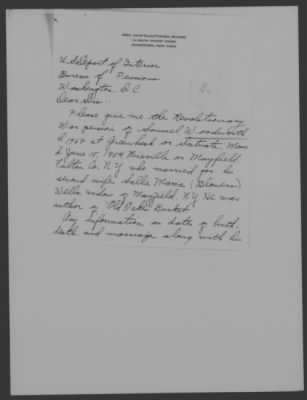 U.S. Depart of Interior
Bureau of Pensions
Washington, D.C.
Dear Sirs:
Please give me the Revolutionary
War pension of Samuel Woodworth
b 1758 at Greenbush or Scituate, Mass
d June 15, Riceville or Mayfield
Fulton Co. N.Y. who married for his
second wife Sallie Maria (Flowers)
Wells widow of Mayfield. N.Y. He was
author of "Old Oaken Bucket"
Any information on dates of birth,
death and marriage along with his